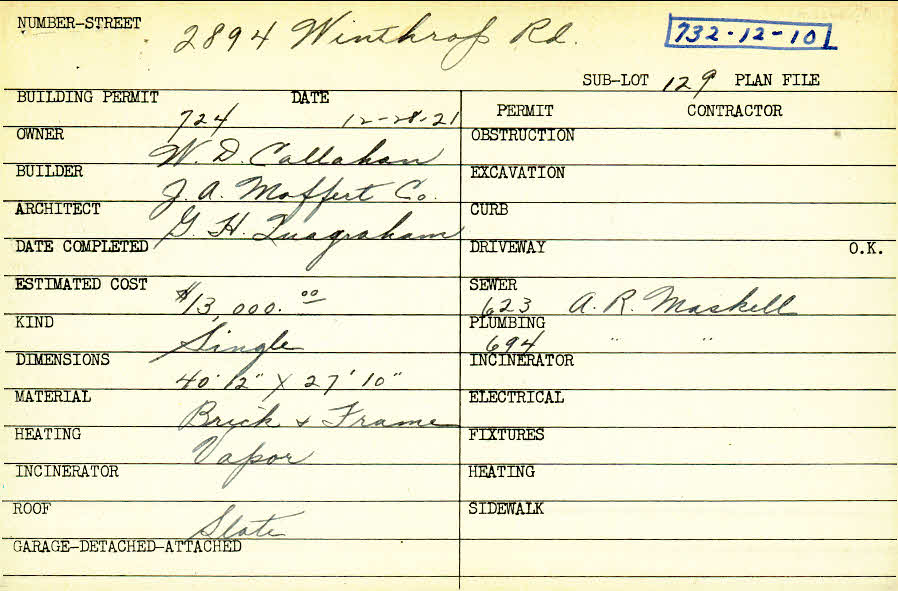 NUMBER-STREET 2894 Winthrop Rd. 732-12-10
SUB-LOT 129 PLAN FILE
BUILDING PERMIT 724 DATE 12-28-21
PERMIT CONTRACTOR
OWNER W. D. Callahan
OBSTRUCTION
BUILDER J. A. Moffert Co.
EXCAVATION
ARCHITECT G. H. Quagraham
CURB
DATE COMPLETED
DRIVEWAY O.K.
ESTIMATED COST $13,000.00
SEWER 623 A. R. Maskell
KIND Single
PLUMBING 694 " "
DIMENSIONS 40' 12" X 27' 10"
INCINERATOR
MATERIAL Brick & Frame
ELECTRICAL
HEATING Vapor
FIXTURES
INCINERATOR
HEATING
ROOF Slate
SIDEWALK
GARAGE-DETACHED-ATTACHED